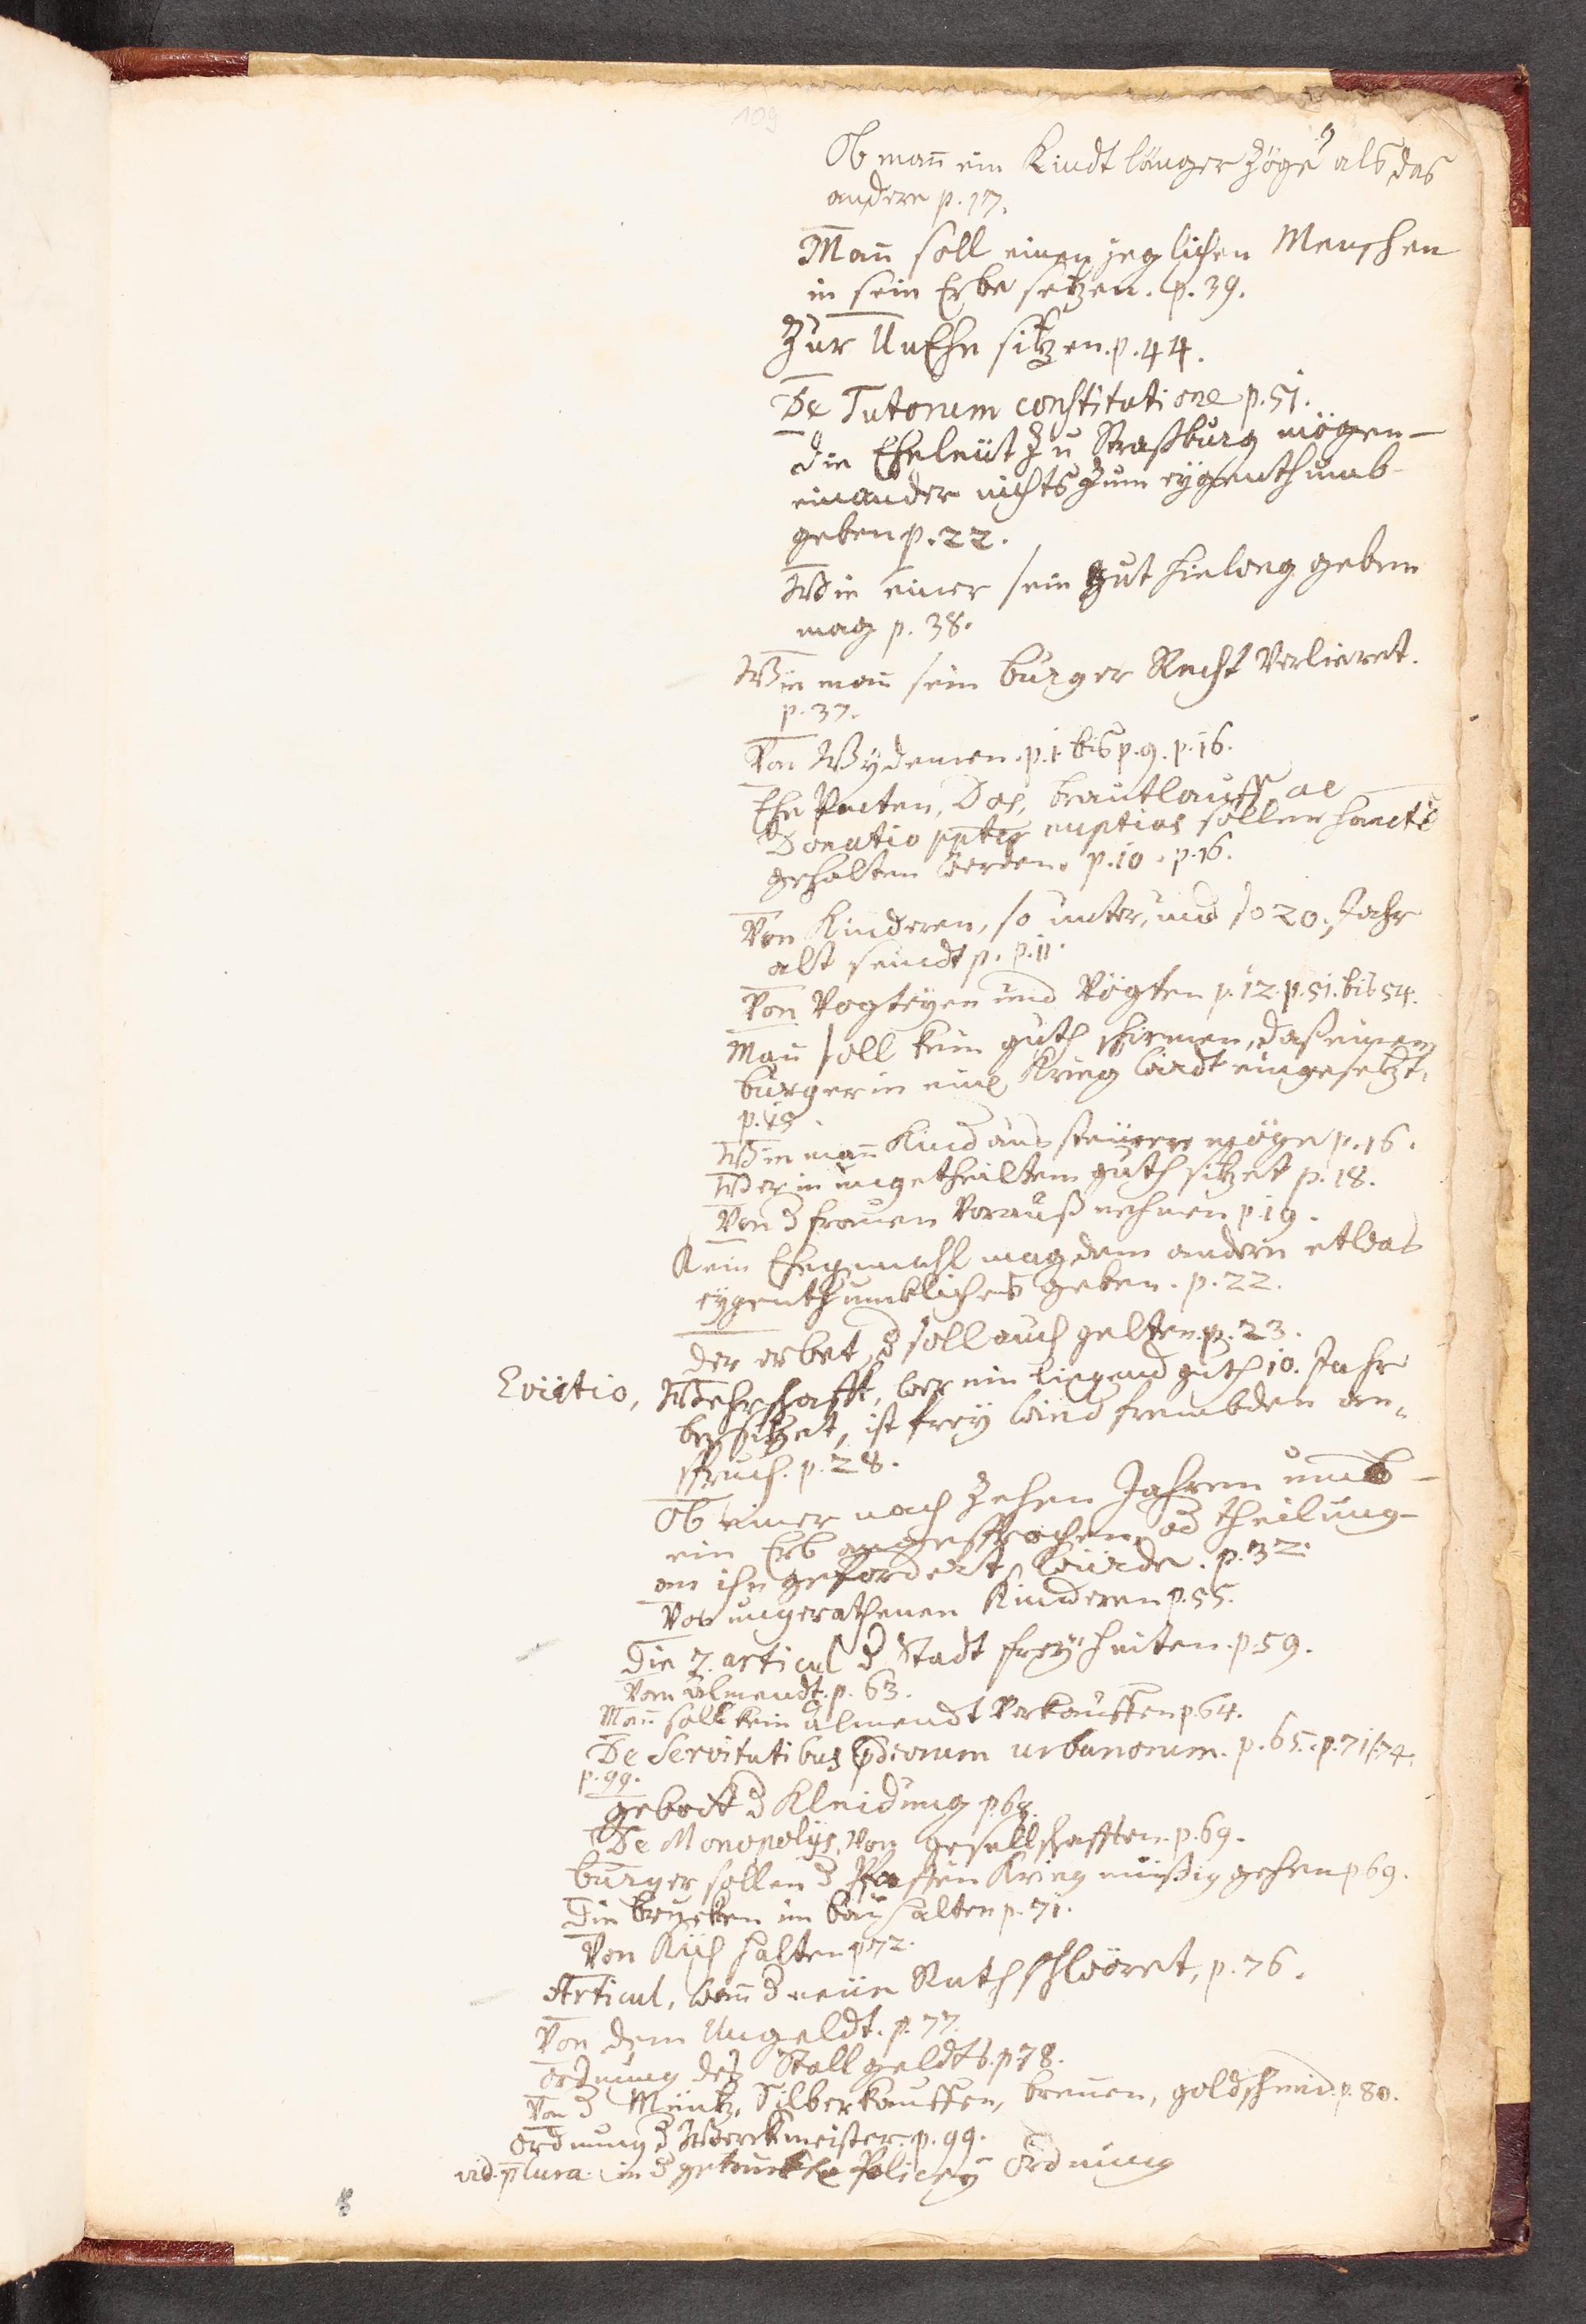 109
Ob mañ ein Kindt länger zöge als das
andere p. 17.
Mañ soll einen jeglichen Menschen
in sein Erbe setzen. p. 39.
Zur UnEhe sitzen. p. 44.
De Tutorum constitutione p. 51.
Die Eheleüt zu Straßburg mögen
einander nichts zum eÿgenthumb
geben p. 22.
Wie einer sein gut hinweg geben
mag p. 38.
Wie mañ sein burger Recht Verlieret.
p. 37.
Von Wÿdemen. p. 1. bis p. 9. p. 16.
Ehe Pacten, Dos, brautlauff, ac
Donatio ppter nuptias sollen sancte
gehalten werden. p. 10. p. 16.
Von Kinderen, so unter, und so 20. Jahr
alt seindt p. p. 11.
Von Vogteÿen und Vögten p. 12. p. 51. bis 54.
Mañ soll kein guth schirmen, daß einem
burger in eine Krieg wirdt eingesetzt.
p. 13.
Wie mañ Kind aus steüren möge p. 16.
Wer in ungetheiltem guth sitzet p. 18.
Von d frauen Vorauß nehmen p. 19.
Kein Ehegemahl mag dem andern etwas
eÿgenthumbliches geben. p. 22.
Der erbet, d soll auch gelten. p. 23.
Evictio, Wehrschafft, wer ein liegend guth 10. Jahr
besitzet, ist freÿ wied frembden an„
spruch. p. 28.
Ob einer nach zehen Jahren umb
ein Erb angesprochen, od theilung
an ihn gefordert würde. p. 32.
Von ungerathenen Kinderen p. 55.
Die 7. articul d Stadt freÿheiten. p. 59.
Vom almendt. p. 63.
Mañ soll kein almendt Verkauffen p. 64.
De Servitutibus pdiorum urbanorum. p. 65. p. 71. 74.
p. 99.
gebott d Kleidung p. 68.
De Monopolijs, von gesellschafften. p. 69.
burger sollen d Pfaffen Krieg müßig gehen p 69.
Die brucken im bau halten p. 71.
Von Küh halten p 72.
Articul, wañ d neüe Rath schwöret, p. 76.
Von dem Ungeldt. p. 77.
ordnung des Stallgeldts. p 78.
Von d Müntz, Silberkauffen, brenen, goldschmid. p. 80.
ordnung d Werckmeister. p. 99.
vid. plura in d getruckte Policeÿ ordnung